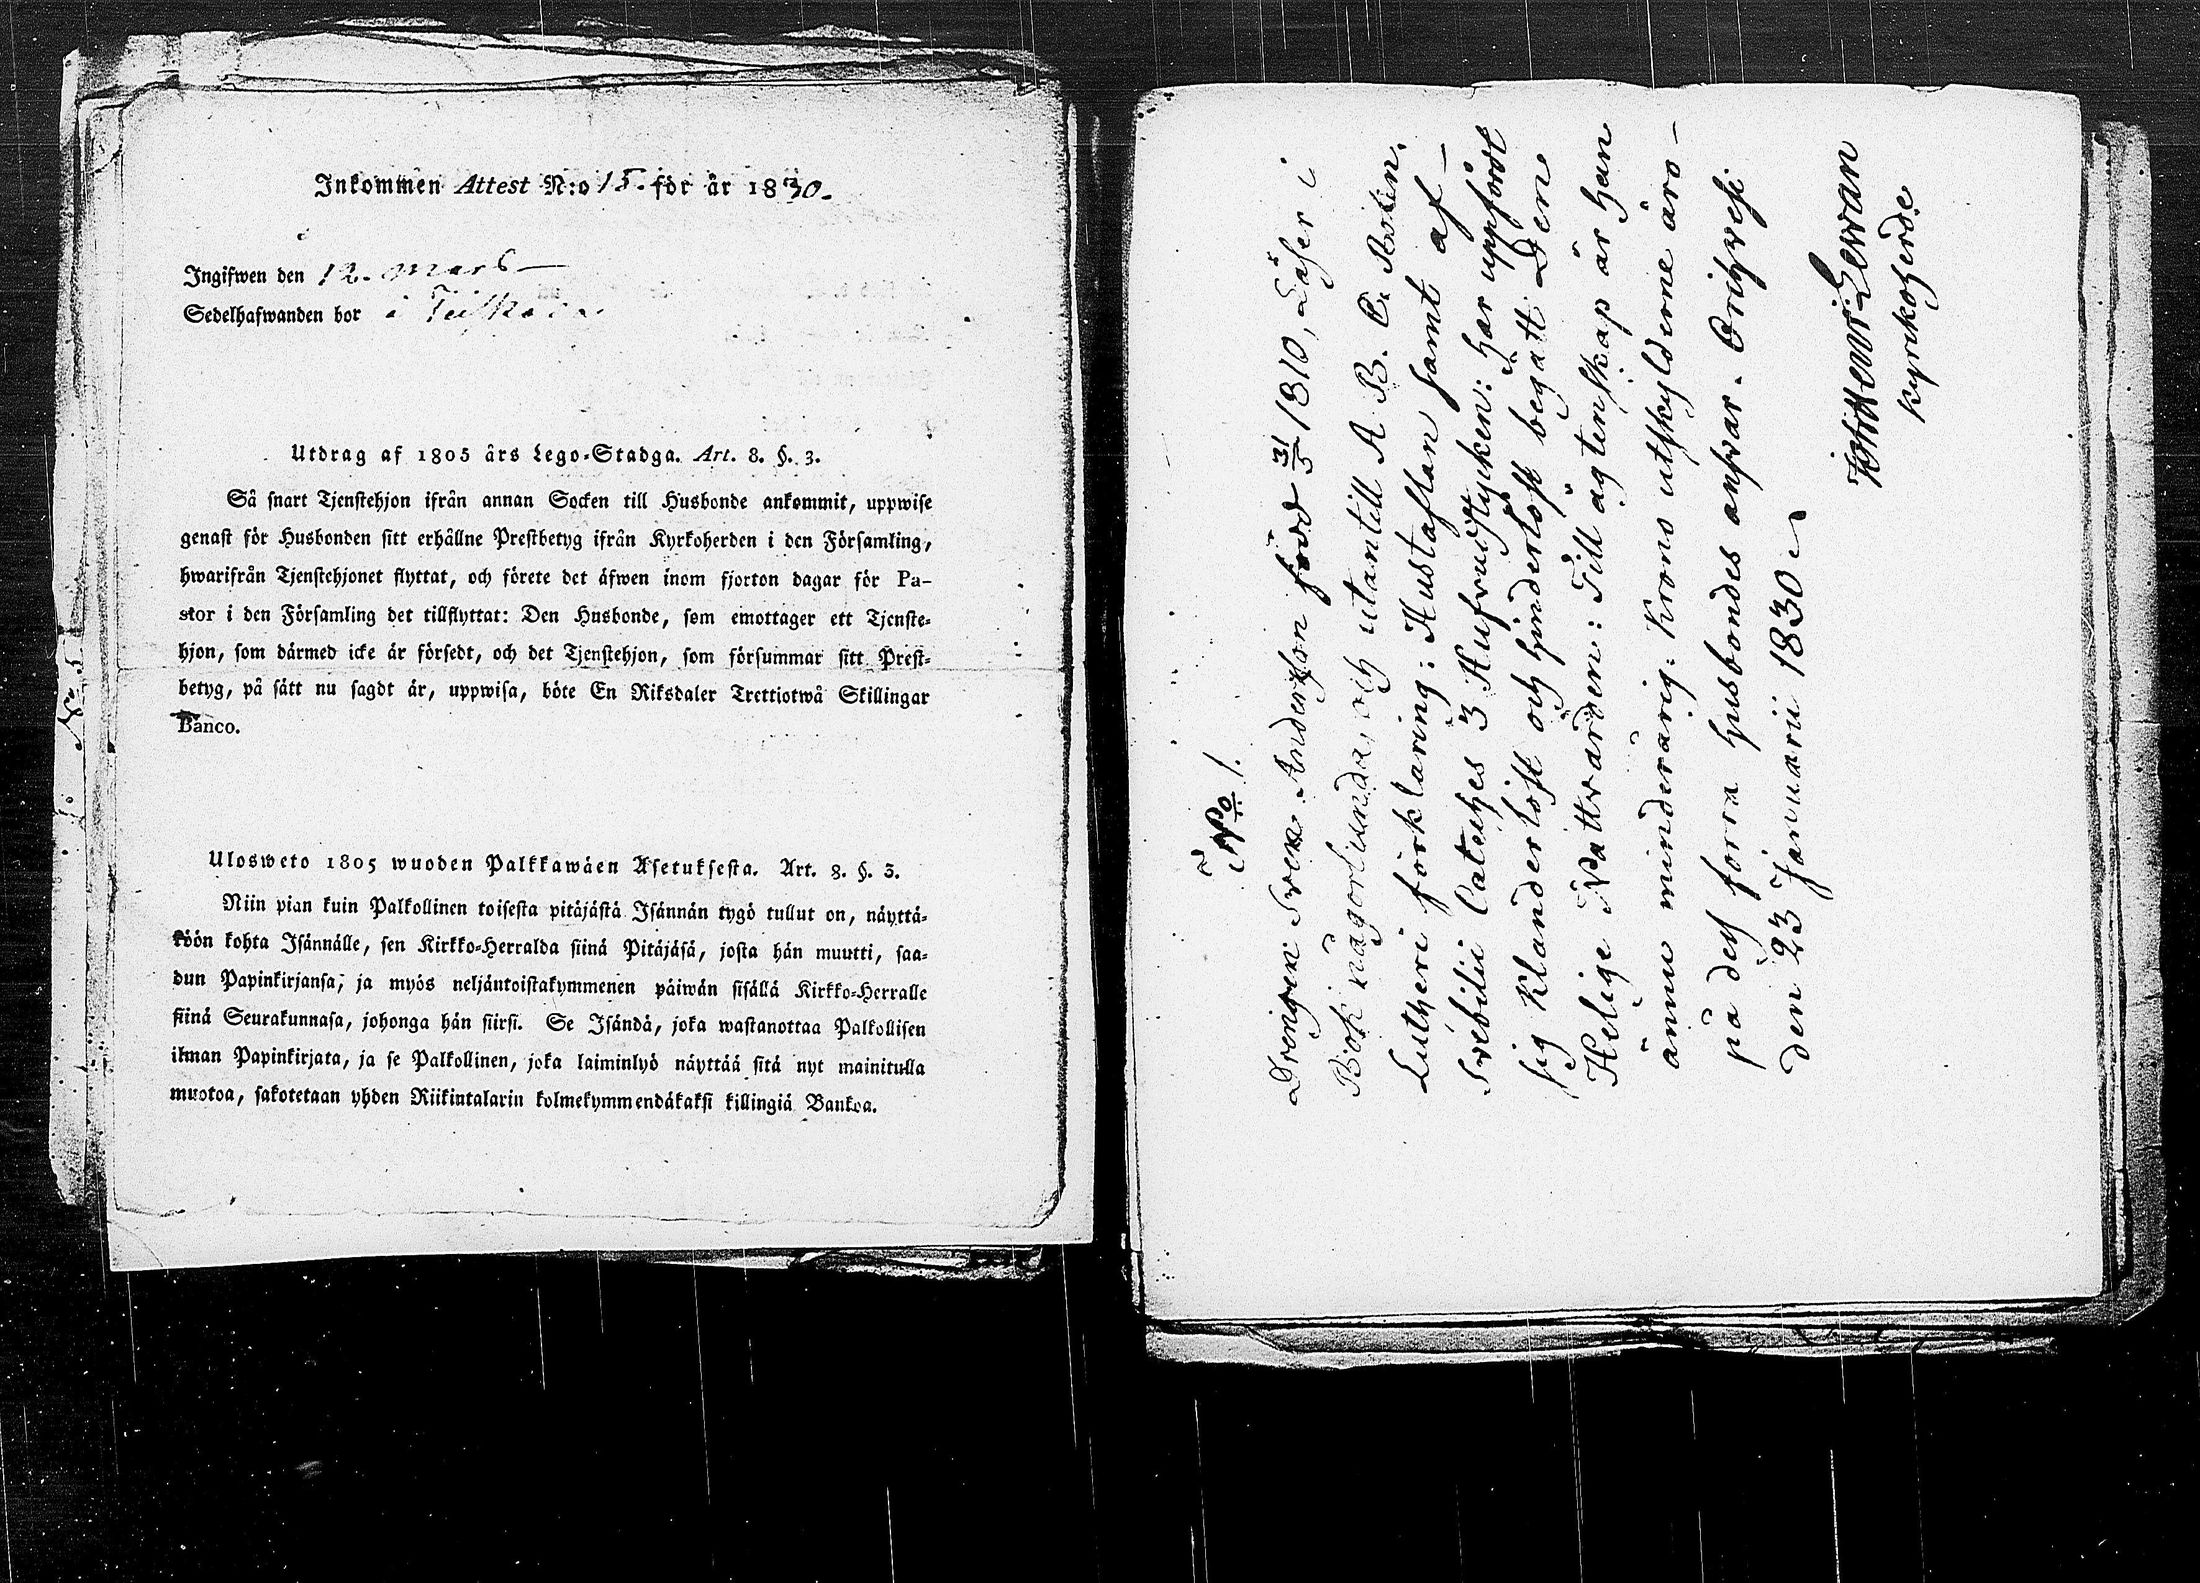 Inkommen Attest N:o 15. för år 1830.
Ingifwen den 12. Mars
Sedelhafwanden bor i
Utdrag af 1805 års Lego-Stadga. Art. 8. §. 3.
Så snart Tjenstehjon ifrån annan Socken till Husbonde ankommit, uppwise
genast för Husbonden sitt erhållne Prestbetyg ifrån Kyrkoherden i den Församling,
hwarifrån Tjenstehjonet flyttat, och förete det äfwen inom fjorton dagar för Pa-
stor i den Församling det tillflyttat: Den Husbonde, som emottager ett Tjenste-
hjon, som därmed icke är försedt, och det Tjenstehjon, som försummar sitt Prest-
betyg, på sätt nu sagdt är, uppwisa, böte En Riksdaler Trettiotwå Skillingar
Banco.
Ulosweto 1805 wuoden Palkkawäen Asetuksesta. Art. 8. §. 3.
Niin pian kuin Palkollinen toisesta pitäjästä Isännän tygö tullut on, näyttä-
köön kohta Isännälle, sen Kirkko-Herralda siinä Pitäjäsä, josta hän muutti, saa-
dun Papinkirjansa, ja myös neljäntoistakymmenen päiwän sisällä Kirkko-Herralle
siinä Seurakunnasa, johonga hän siirsi. Se Isändä, joka wastanottaa Palkollisen
ilman Papinkirjata, ja se Palkollinen, joka laiminlyö näyttää sitä nyt mainitulla
muotoa, sakotetaan yhden Riikintalarin kolmekymmendäkaksi killingiä Bankoa.
No 1.
Drengen Sven Andersson född 31/5 1810, Läser i
Bok någorlunda, och utantill A B. C. Boken,
Lutheri förklaring: Hustaflan samt af
Svebilii Cateches 3 Hufvudstycken: har uppfördt
sig Klanderlöst och hinderlöst begått Den
Helige Nattvarden: Till ägtenskap är han
ännu minderårig. Krono utskylderne äro
på dess forra husbondes ansvar. Orihvesi
den 23 Januarii 1830
Kyrkoherde